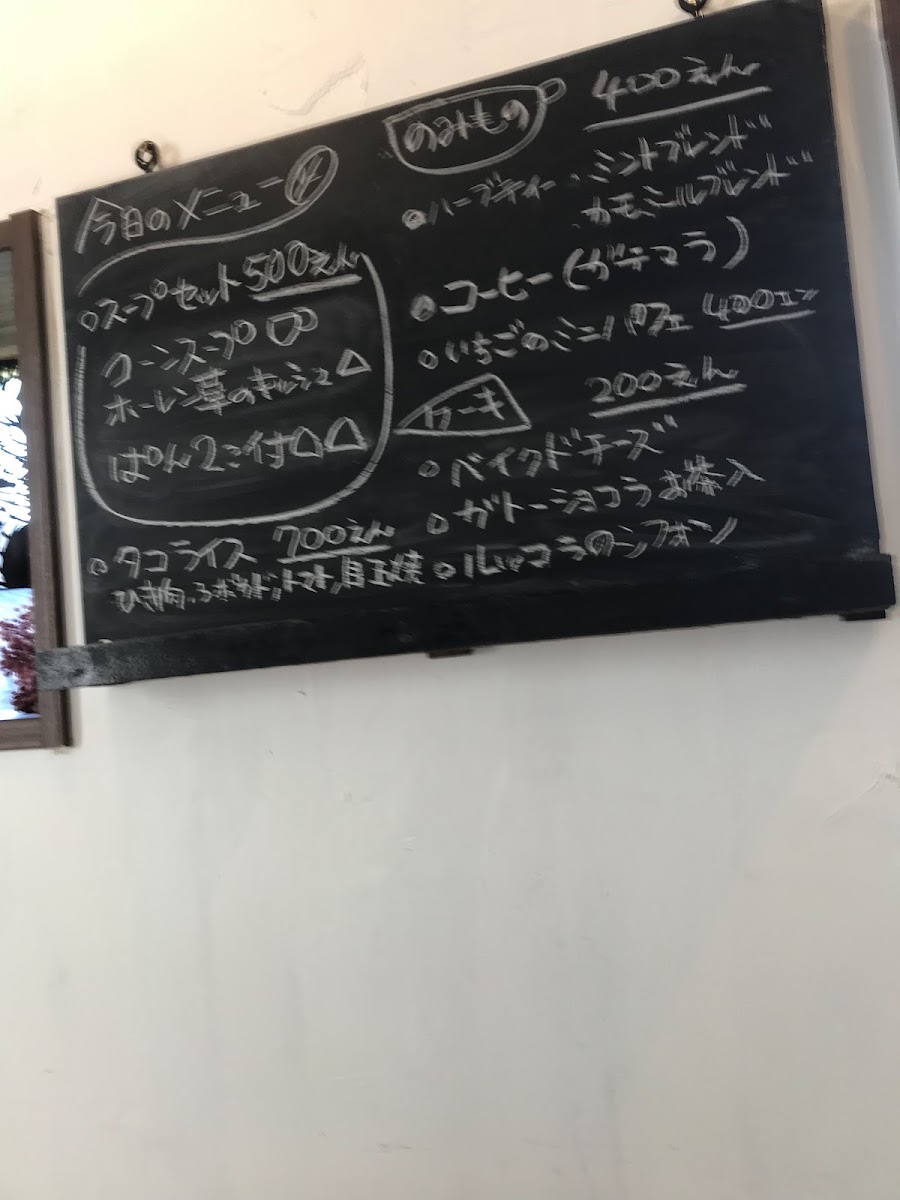 今日のメニュー
○スープセット 500えん
コーンスープ
ホーレン草のキッシュ
ぱん2こ付
○タコライス 700えん
ひき肉、アボガド、トマト、目玉焼
のみもの 400えん
●ハーブティー・ミントブレンド
カモミールブレンド
●コーヒー(ガテマラ)
○いちごのミニパフェ 400エン
ケーキ 200えん
○ベイクドチーズ
○ガトーショコラお茶入
○ルッコラのシフォン